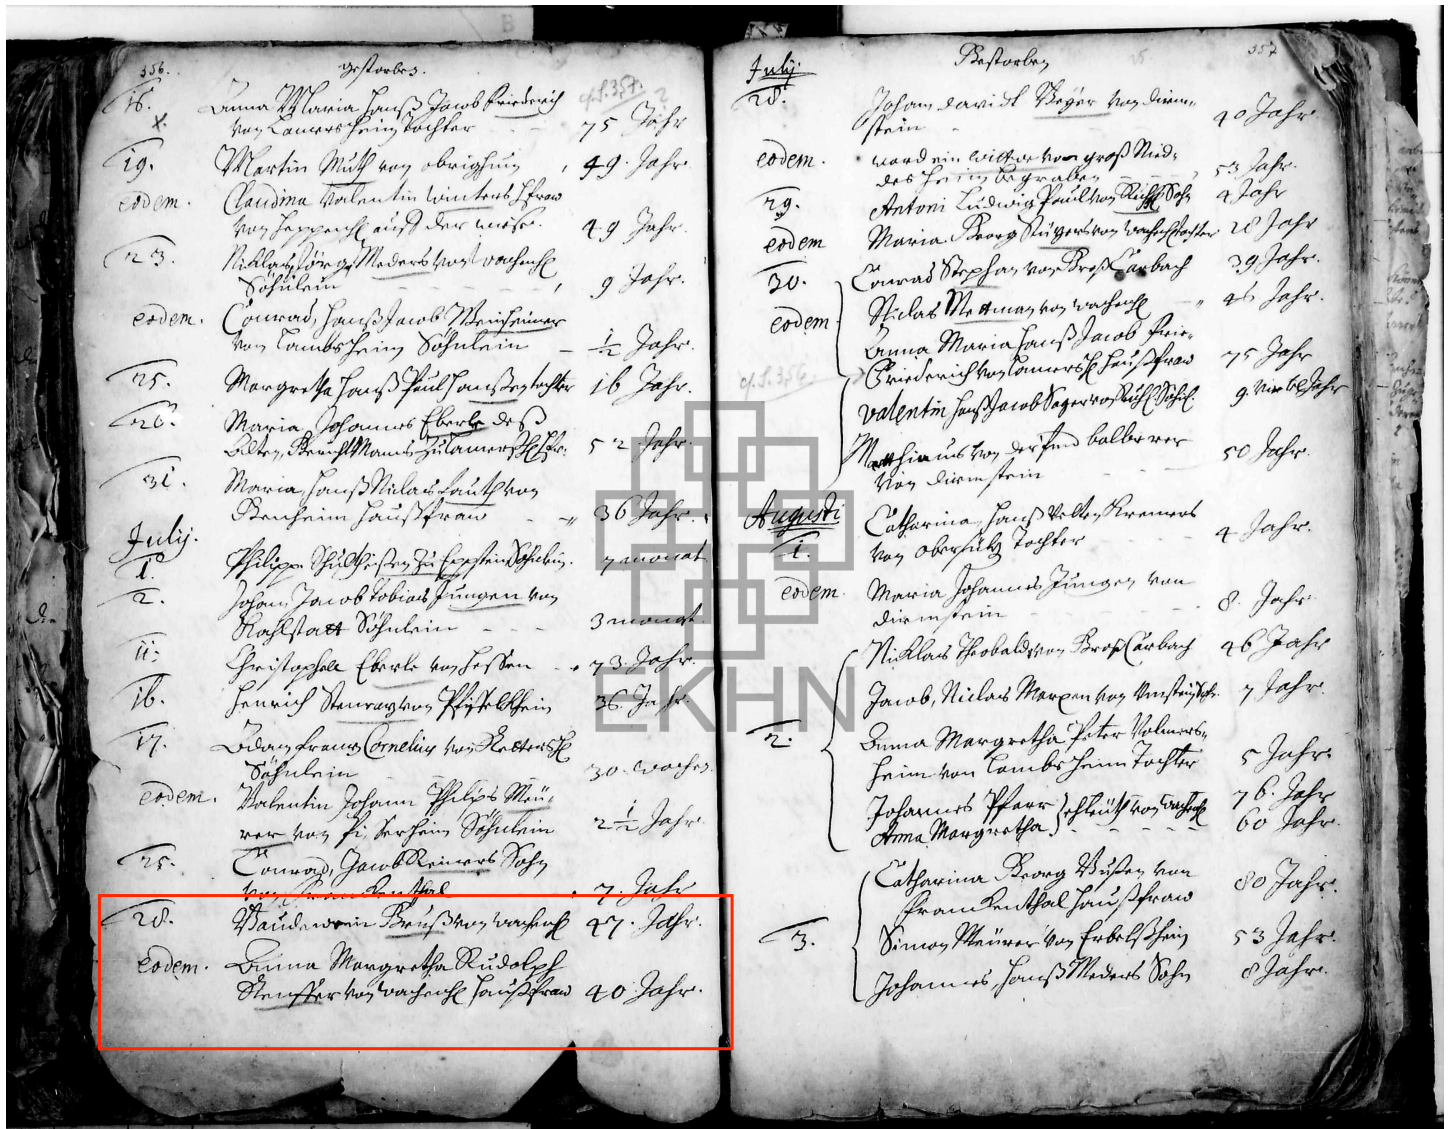 356.
gestorben.
cf. S. 357.
16.
Anna Maria Hanß Jacob Friederich
von Lamersheim tochter
75 Jahr
19.
Martin Muth von obrigheim
49. Jahr.
eodem.
Claudina Valentin winters Hfraw
von Heppenh. auß der wiese.
49 Jahr.
23.
Niklaus Jörg Meders von wachenh.
Söhnlein
9 Jahr.
eodem.
Conrad, Hanß Jacob Weinheimer
von Lambsheim Söhnlein
1/2 Jahr.
25.
Margretha Hanß Paul Hanßen tochter
16 Jahr.
26.
Maria, Johannes Eberle deß
Alten, 
52 Jahr.
31.
Maria, Hanß Niclas Lauth von
Benheim Haußfraw
36 Jahr.
Julij.
1.
Philipp Schultheisen zu Eppstein Söhnlein.
7 monat
2.
Johan Jacob Tobias Jungen von
Kahlstatt Söhnlein
3 monat
11.
Christophell Eberle von Hessen
73. Jahr.
16.
Henrich 
36. Jahr.
17.
Adam frantz Cornelius von 
Söhnlein
30. wochen.
eodem.
Valentin Johann Philips Meü-
rer von Söhnlein
2 1/2 Jahr.
25.
Conrad, Jacob Reiners Sohn
von Franckenthal
7. Jahr
28.
Baudewein Breuß von wachenh.
47. Jahr.
eodem.
Anna Margretha Rudolph
Steuffer von wachenh. Haußfraw
40 Jahr.
357
Julij.
Gestorben
28.
Johann david Beyer von dirm-
stein
40 Jahr.
eodem.
ward ein wittwe von groß Nied-
desheim begraben
53 Jahr.
29.
Antoni Ludwig Paul von Sohn
4 Jahr
eodem
Maria Georg von wachenh. tochter
28 Jahr
30.
Conrad Stephan von Groß Carbach
39 Jahr.
eodem
Niclas Mettman von wachenh.
46 Jahr.
Anna Maria Hanß Jacob Frie-
cf. S. 356.
Friederich von Lamersh. Haußfraw
75 Jahr
Valentin Hanß Jacob Sager von Söhnl.
9. viertel Jahr
Matthias von der 
von dirmstein
50 Jahr.
Augusti
1.
Catharina, Hanß Velten Kremers
von Tochter
4 Jahr.
eodem.
Maria Johannes Jungen von
dirmstein
8. Jahr
Niklas Theobald von Groß Carbach
46 Jahr
Jacob, Niclas Merxen von Sohn.
7 Jahr.
2.
Anna Margretha Peter Volmers-
heim von Lambsheim Tochter
5 Jahr.
Johannes Pfarr
ehleuth von wachenh.
76. Jahr
Anna Margretha
60 Jahr.
Catharina Georg von
Franckenthal Haußfraw
80 Jahr.
3.
Simon Meürer von Erbelsheim
53 Jahr.
Johannes, Hanß Meders Sohn
8 Jahr.
EKHN